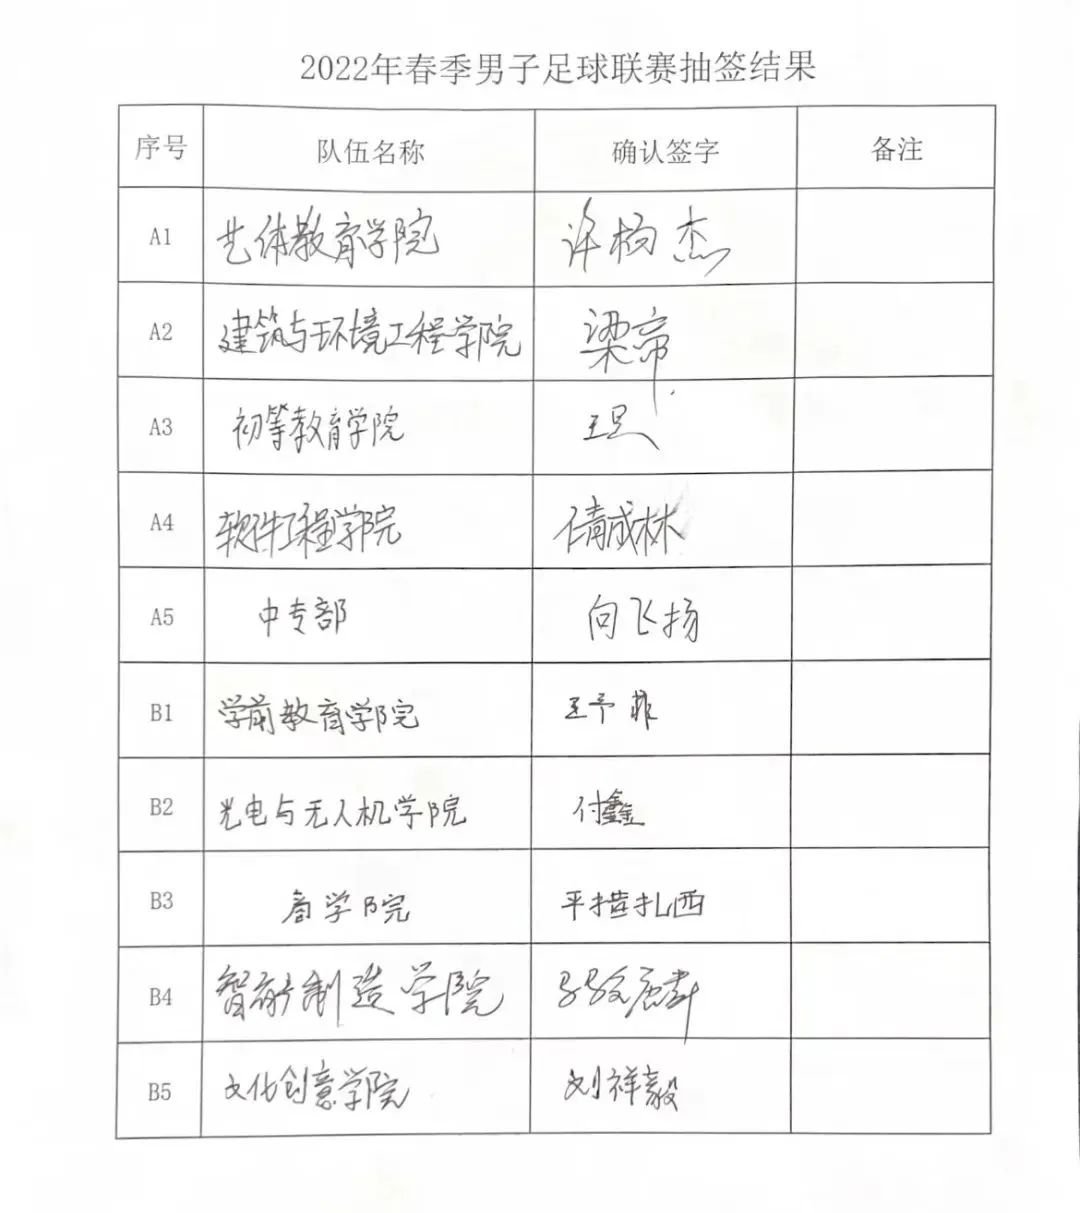 2022年春季男子足球联赛抽签结果
序号 队伍名称 确认签字 备注
A1 艺体教育学院 许杨杰
A2 建筑与环境工程学院 梁帝
A3 初等教育学院 王
A4 软件工程学院 倩成林
A5 中专部 向飞扬
B1 学前教育学院 王予菲
B2 光电与无人机学院 付鑫
B3 商学院 平措扎西
B4 智能制造学院
B5 文化创意学院 刘祥毅